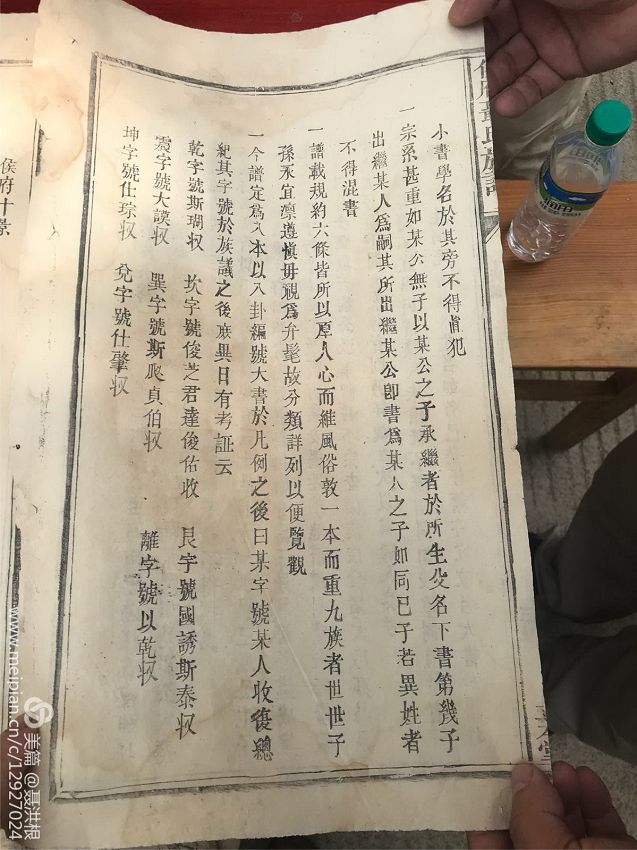 氏族
小書學名於其旁不得犯
一宗系甚重如某公無子以某公之子承繼者於所生父名下書第幾子
出繼某人爲嗣其所出繼某公卽書爲某人之子如同己子若異姓者
不得混書
一譜載規約六條皆所以厚人心而維風俗敦一本而重九族者世世子
孫永宜凛遵慎毋視爲弁髦故分類詳列以便覽觀
一今譜定爲八本以八卦編號大書於凡例之後曰某字號某人收復總
紀其字號於族議之後庶異日有考証云
乾字號斯瑚収 坎字號俊芝君達俊佑收 艮字號國誘斯泰収
震字號大謨収 巽字號斯爬貞伯収 離字號以乾収
坤字號仕琮収 兌字號仕肇収
侯府十景
美篇 @聂洪根
www.meipian.cn/c/12927024